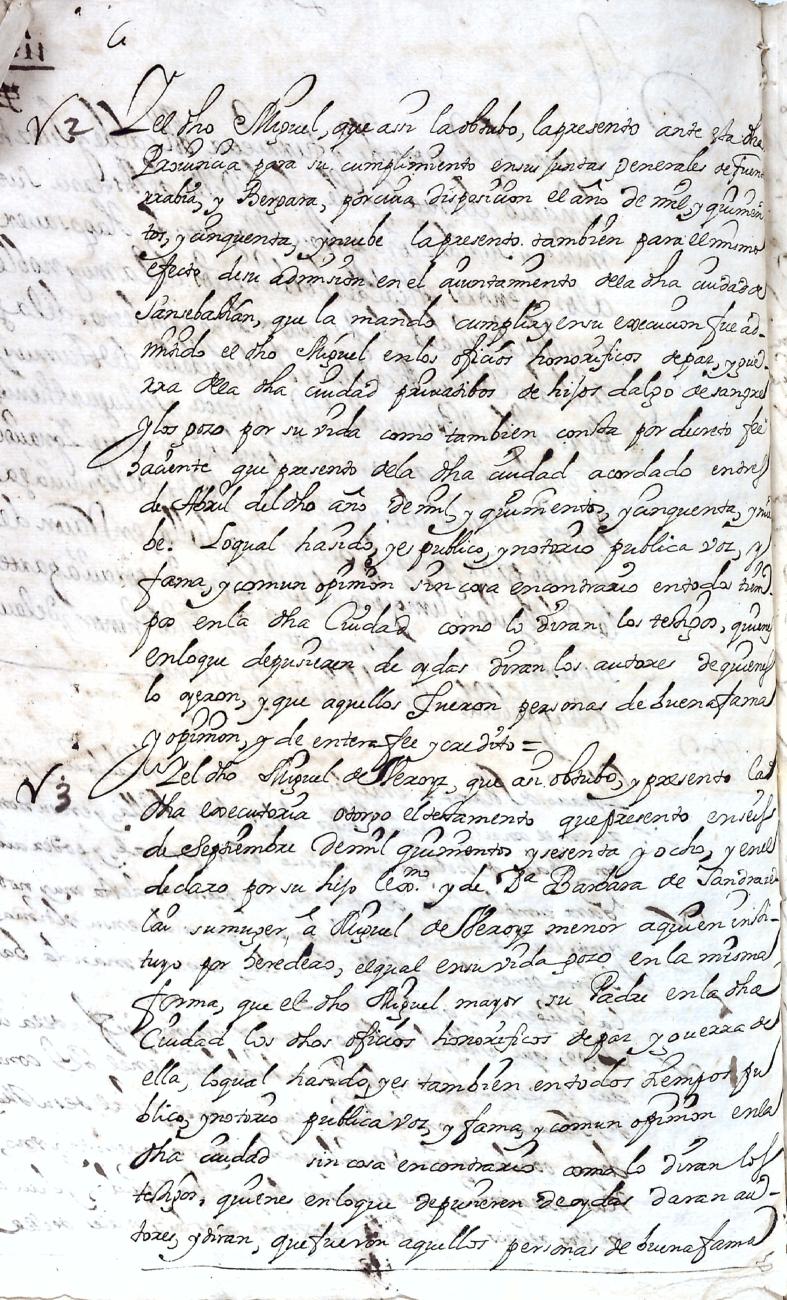 V 2 Y el dho Miguel, que assi la obtubo, la presento ante esta dha
Prouincia para su cumplimiento en sus Juntas generales de Fuen
rrabia, y Bergara, por cuia disposicion el año de mil y quinien
tos, y cinquenta, y nuebe la presento tambien para el mismo
efecto de su admision en el aiuntamiento de la dha ciudad de
Sansebastian, que la mando cumplir, y en su execucion fue ad-
mitido el dho Miguel en los oficios honorificos de paz, y gue-
rra de la dha ciudad priuatibos de hijos dalgo de sangre
y los gozo por su vida como tambien consta por decreto fee
haciente que presento de la dha ciudad acordado en tres
de Abril del dho año de mil, y quinientos, y cinquenta, y nue
be. Lo qual ha sido, y es publico, y notorio publica voz, y
fama, y comun opinion sin cosa en contrario en todo tiem-
po en la dha Ciudad como lo diran los testigos, quienes
en lo que depusieren de oydas diran los autores de quienes
lo oyeron, y que aquellos fueron personas de buena fama
y opinion, y de entera fee y credito =
V 3 Y el dho Miguel de Veroyz, que assi obtubo, y presento la
dha executoria otorgo el testamento que presento en seis
de Septiembre de mil quinientos y sesenta y ocho, y en el
declaro por su hijo lexmo. y de Da Barbara de
su muger, a Miguel de Veroyz menor a quien insti-
tuyo por heredero, el qual en su vida gozo en la misma
forma, que el dho Miguel mayor su Padre en la dha
Ciudad los dhos oficios honorificos de paz y guerra de
ella, lo qual ha sido, y es tambien en todos tiempos pu
blico, y notorio publica voz, y fama, y comun opinion en la
dha ciudad sin cosa en contrario como lo diran los
testigos, quienes en lo que depusieren de oydas daran au-
tores, y diran, que fueron aquellos personas de buena fama